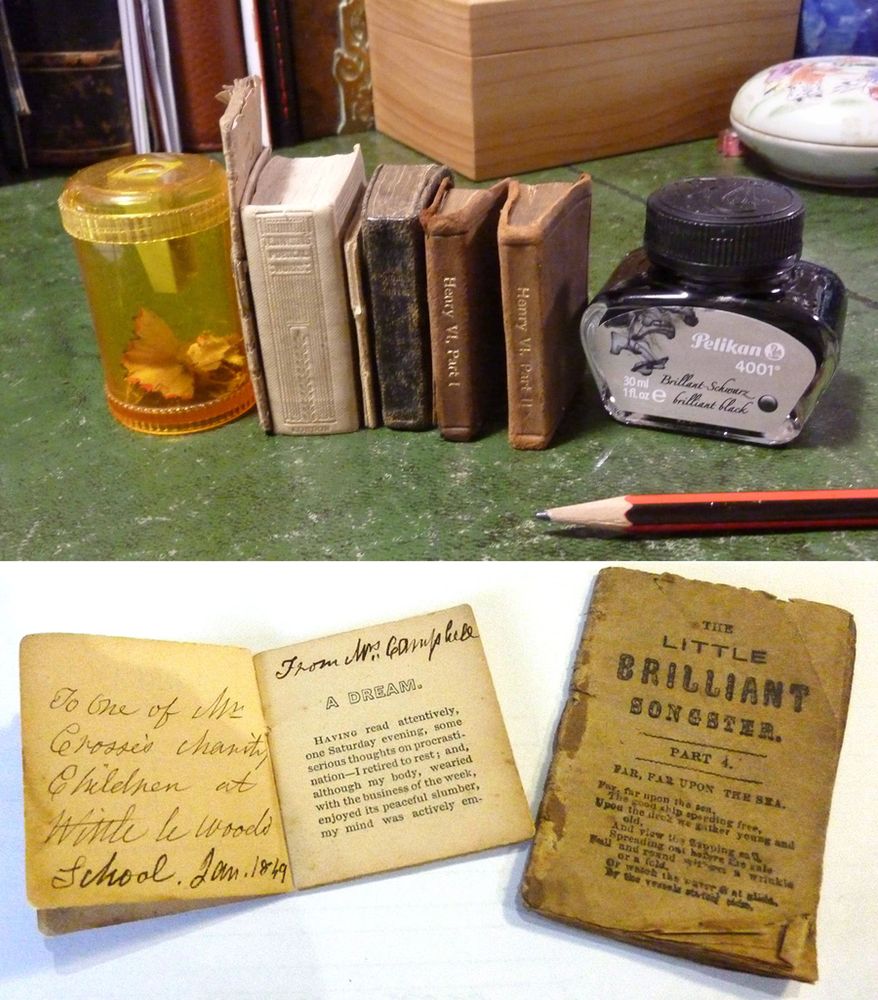 Henry VI, Part I
Henry VI, Part II
Pelikan
4001®
30 ml
1 fl.oz e
Brillant-Schwarz
brilliant black
LONDON
To One of Mr
Crosse's charity
Children at
Whittle le Woods
School. Jan. 1849
From Mrs. Campbell
A DREAM.
HAVING read attentively,
one Saturday evening, some
serious thoughts on procrasti-
nation—I retired to rest; and,
although my body, wearied
with the business of the week,
enjoyed its peaceful slumber,
my mind was actively em-
THE
LITTLE
BRILLIANT
SONGSTER.
PART 4.
FAR, FAR UPON THE SEA.
Far, far upon the sea,
The good ship speeding free,
Upon the deck we gather young and
old,
And view the flapping sail
Spreading out before the gale
Full and round without a wrinkle
or a fold.
Or watch the waves
By the vessels